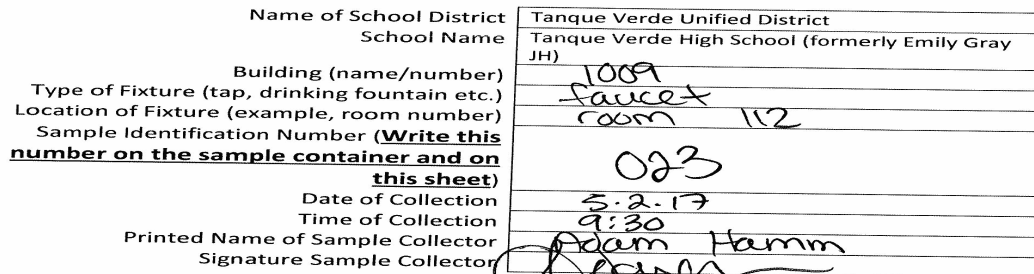 Name of School District Tanque Verde Unified District
School Name Tanque Verde High School (formerly Emily Gray
JH)
Building (name/number) 1009
Type of Fixture (tap, drinking fountain etc.) faucet
Location of Fixture (example, room number) room 112
Sample Identification Number (Write this
number on the sample container and on
this sheet) 023
Date of Collection 5.2.17
Time of Collection 9:30
Printed Name of Sample Collector Adam Hamm
Signature Sample Collector